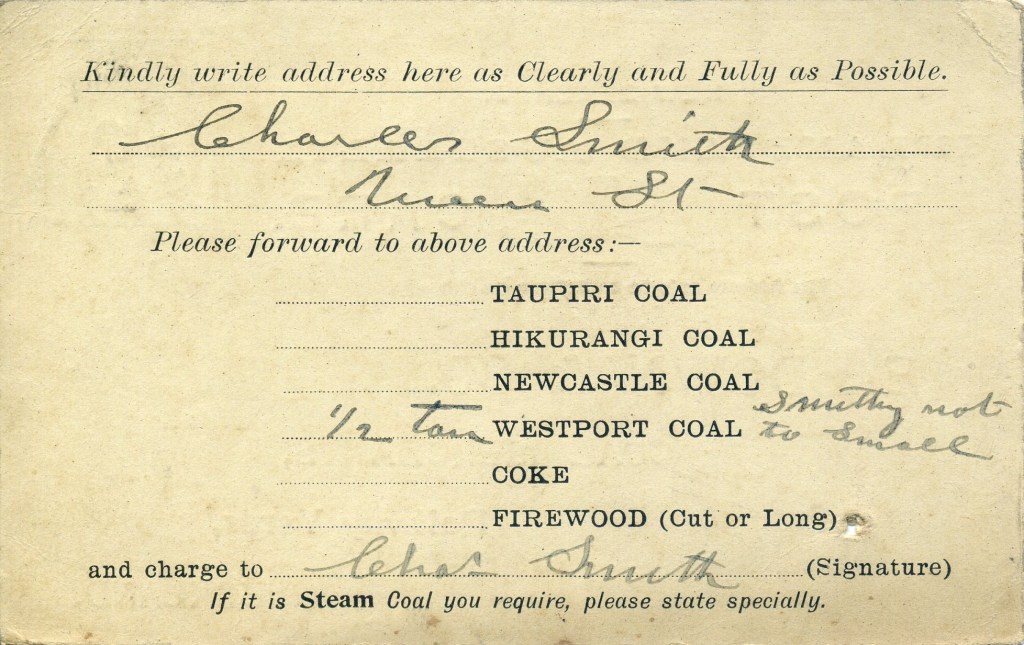 Kindly write address here as Clearly and Fully as Possible.
Charles Smith
Queen St
Please forward to above address:—
TAUPIRI COAL
HIKURANGI COAL
NEWCASTLE COAL
1/2 ton WESTPORT COAL Smithy not to Small
COKE
FIREWOOD (Cut or Long)
and charge to Chas Smith (Signature)
If it is Steam Coal you require, please state specially.